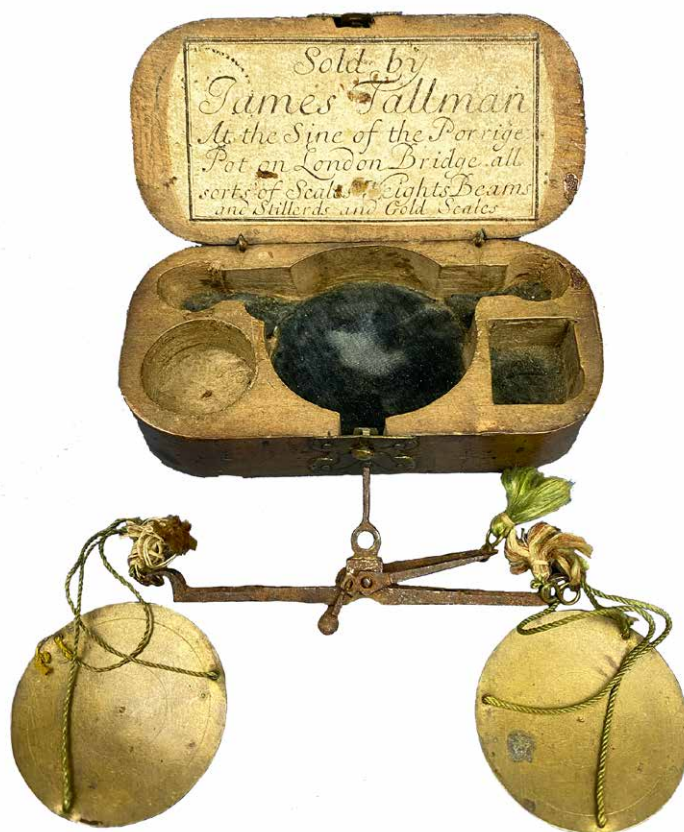 Sold by
James Tallman
At the Sine of the Porrige
Pot on London Bridge all
sorts of Scales Weights Beams
and Stillerds and Gold Scales